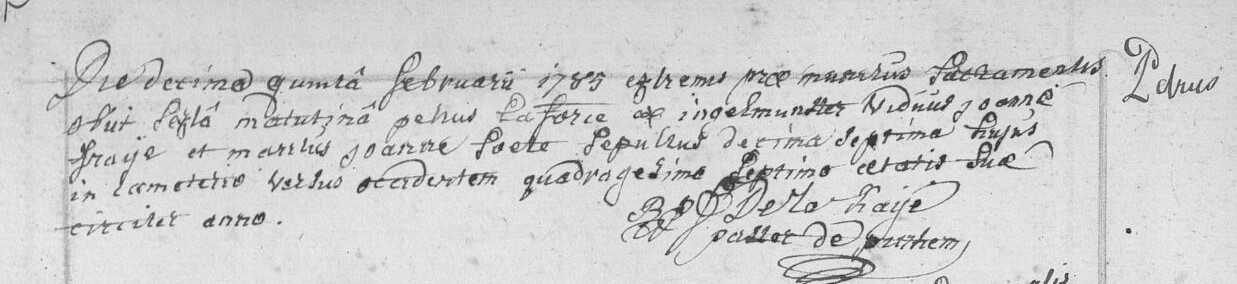 Die decima quinta februarii 1785 extremis præmunitus Sacramentis
obiit sexta matutinâ petrus Laforce ex ingelmunster viduus joannæ
et maritus joannæ Soete sepultus decima septima hujus
in cæmeterio versus occidentem quadragesimo septimo ætatis suæ
circiter anno.
De la haije
pastor de
Petrus